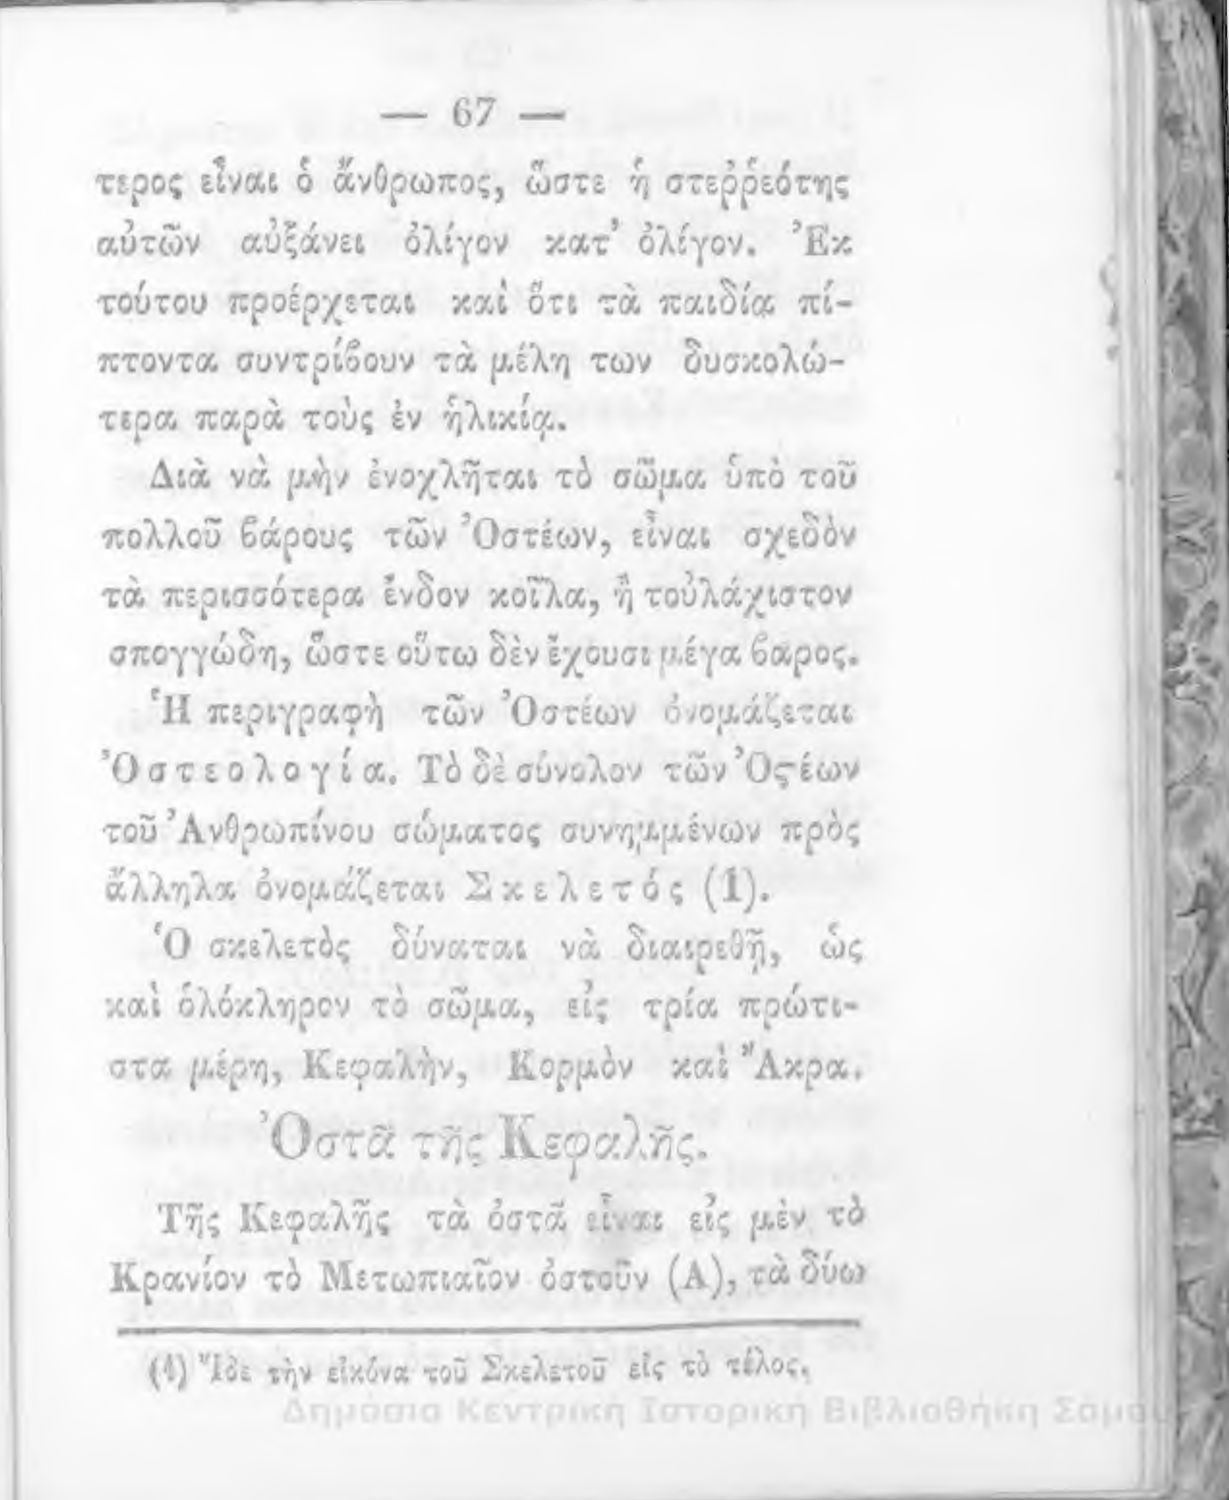 — 67 —
τερος εἶναι ὁ ἄνθρωπος, ὥστε ἡ στεῤῥεότης
αὐτῶν αὐξάνει ὀλίγον κατ' ὀλίγον. Ἐκ
τούτου προέρχεται καὶ ὅτι τὰ παιδία πί-
πτοντα συντρίβουν τὰ μέλη των δυσκολώ-
τερα παρὰ τοὺς ἐν ἡλικίᾳ.
Διὰ νὰ μὴν ἐνοχλῆται τὸ σῶμα ὑπὸ τοῦ
πολλοῦ βάρους τῶν Ὀστέων, εἶναι σχεδὸν
τὰ περισσότερα ἔνδον κοῖλα, ἢ τοὐλάχιστον
σπογγώδη, ὥστε οὕτω δὲν ἔχουσι μέγα βαρος.
Ἡ περιγραφὴ τῶν Ὀστέων ὀνομάζεται
Ὀστεολογία. Τὸ δὲ σύνολον τῶν Ὀϛέων
τοῦ Ἀνθρωπίνου σώματος συνημμένων πρὸς
ἄλληλα ὀνομάζεται Σκελετός (1).
Ὁ σκελετὸς δύναται νὰ διαιρεθῇ, ὡς
καὶ ὁλόκληρον τὸ σῶμα, εἰς τρία πρώτι-
στα μέρη, Κεφαλὴν, Κορμὸν καὶ Ἄκρα.
Ὀστᾶ τῆς Κεφαλῆς.
Τῆς Κεφαλῆς τὰ ὀστᾶ εἶναι εἰς μὲν τὸ
Κρανίον τὸ Μετωπιαῖον ὀστοῦν (Α), τὰ δύω
(1) Ἴδε τὴν εἰκόνα τοῦ Σκελετοῦ εἰς τὸ τέλος.
Δημόσια Κεντρική Ιστορική Βιβλιοθήκη Σάμου